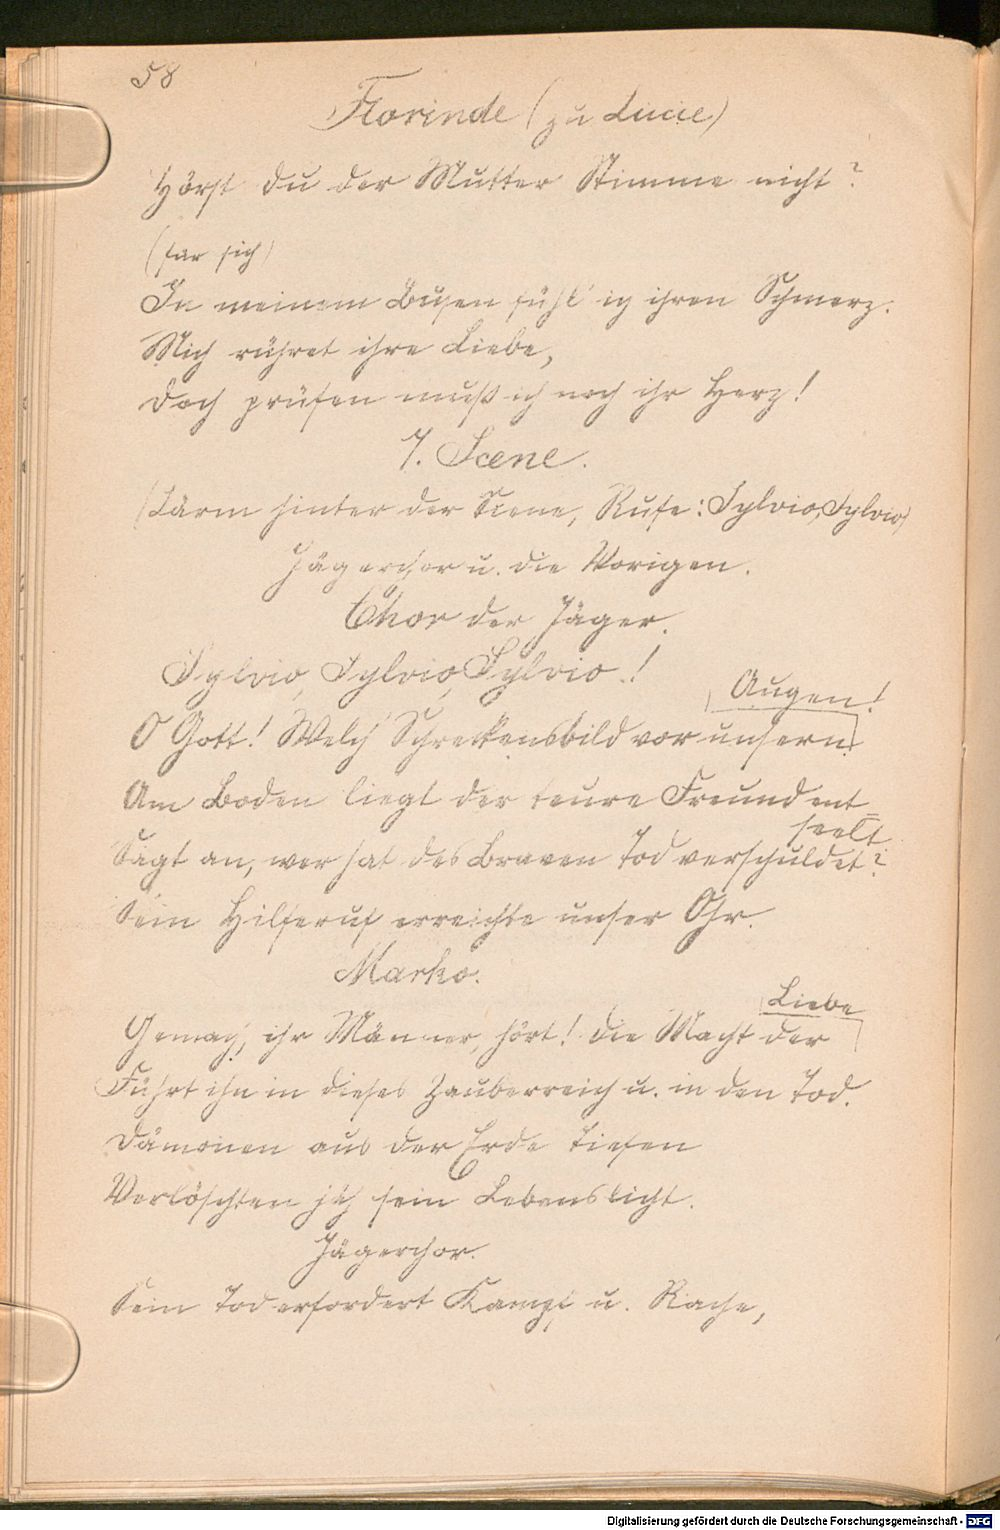 58
Florinde (zu Lucie)
Hörst du der Mutter Stimme nicht?
(für sich)
In meinem Busen fühl' ich ihren Schmerz.
Mich rühret ihre Liebe,
Doch prüfen muß ich noch ihr Herz!
7. Scene.
(Lärm hinter der Scene, Rufe: Sylvio, Sylvio)
Jägerchor u. die Vorigen.
Chor der Jäger.
Sylvio, Sylvio, Sylvio!
Augen!
O Gott! Welch' Schreckensbild vor unsern
Am Boden liegt der teure Freund ent-
seelt.
Sagt an, wer hat des Braven Tod verschuldet?
Sein Hilferuf erreichte unser Ohr.
Marko.
Liebe
Gemach, ihr Männer, hört! Die Macht der
Führt ihn in dieses Zauberreich u. in den Tod.
Dämonen aus der Erde Tiefen
Verlöschten jäh sein Lebenslicht.
Jägerchor.
Sein Tod erfordert Kampf u. Rache,
Digitalisierung gefördert durch die Deutsche Forschungsgemeinschaft - DFG